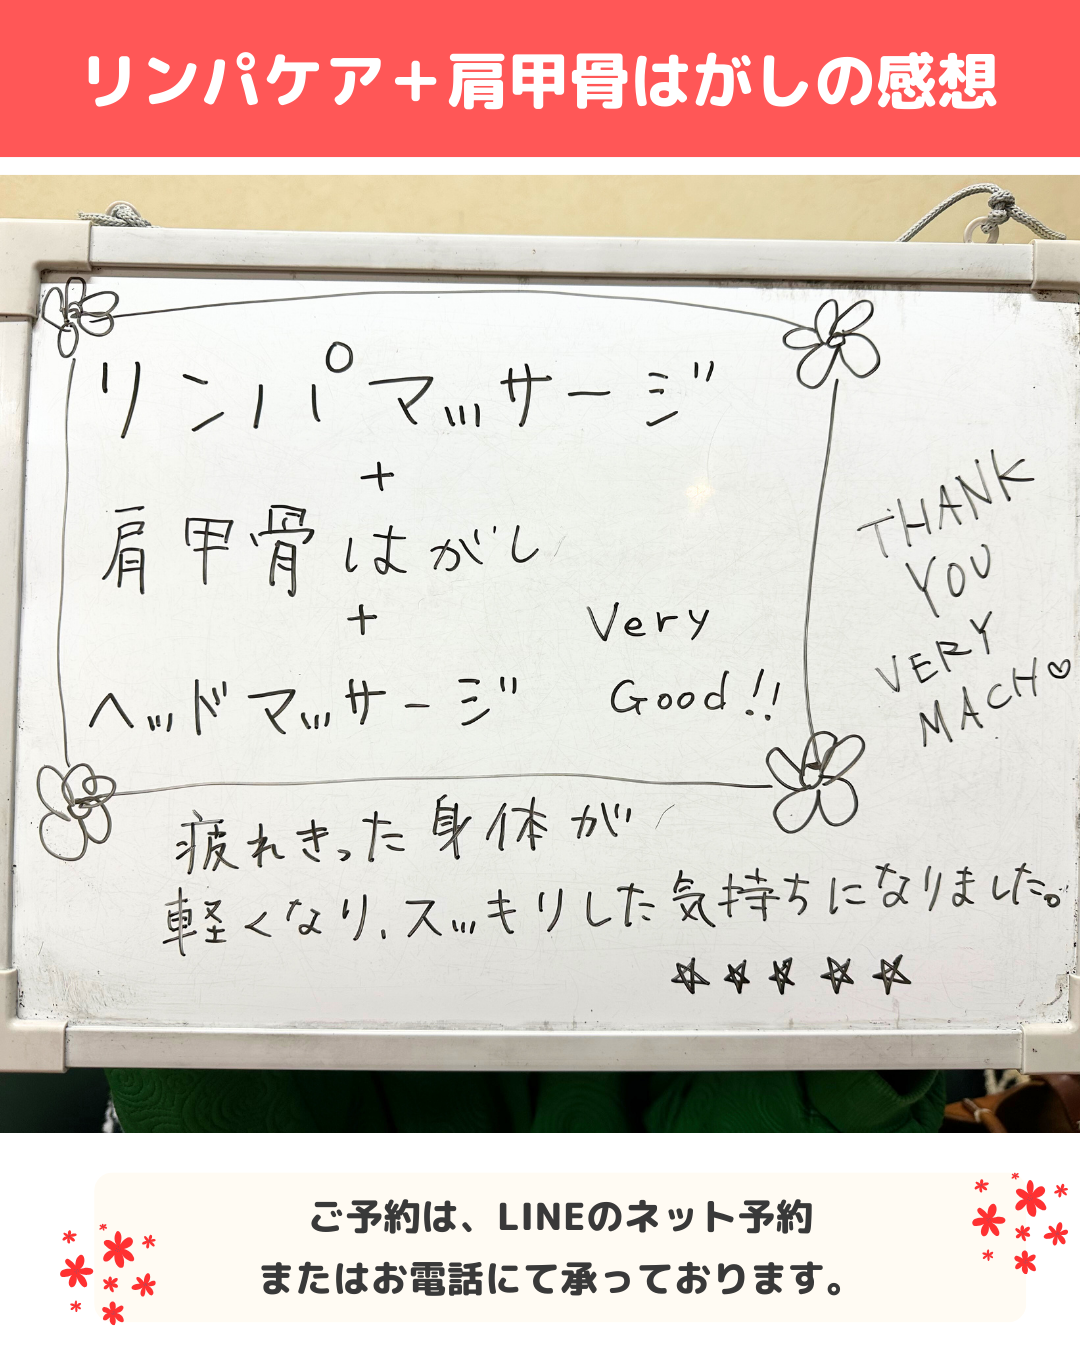 リンパケア＋肩甲骨はがしの感想
リンパマッサージ
+
肩甲骨はがし
+
ヘッドマッサージ
Very
Good!!
THANK
YOU
VERY
MACH♡
疲れきった身体が
軽くなり、スッキリした気持ちになりました。
☆☆☆☆☆
ご予約は、LINEのネット予約
またはお電話にて承っております。